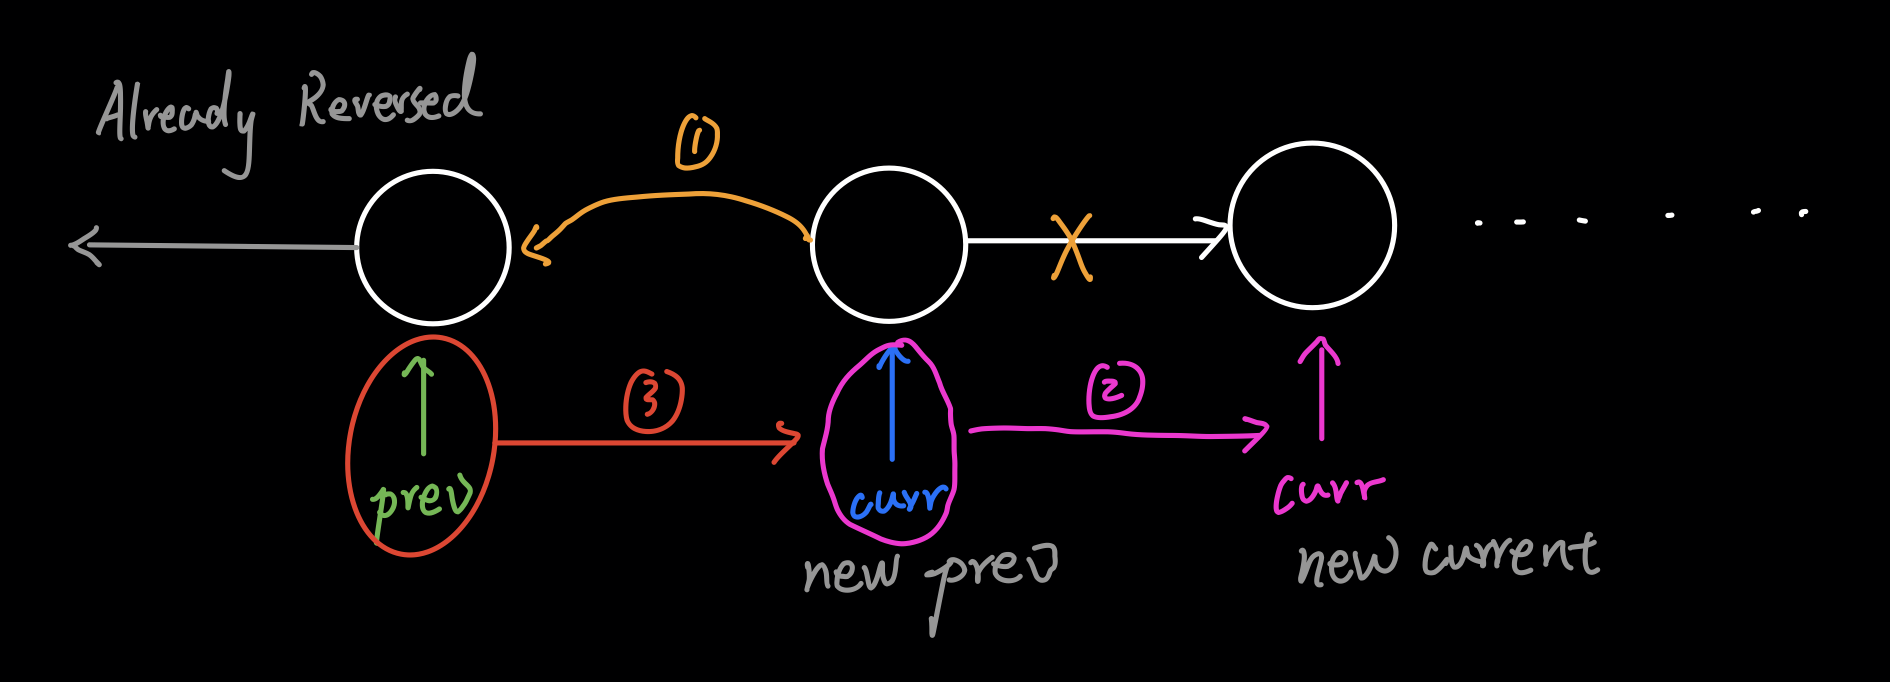 Already Reversed
1
3
2
prev
curr
curr
new prev
new current